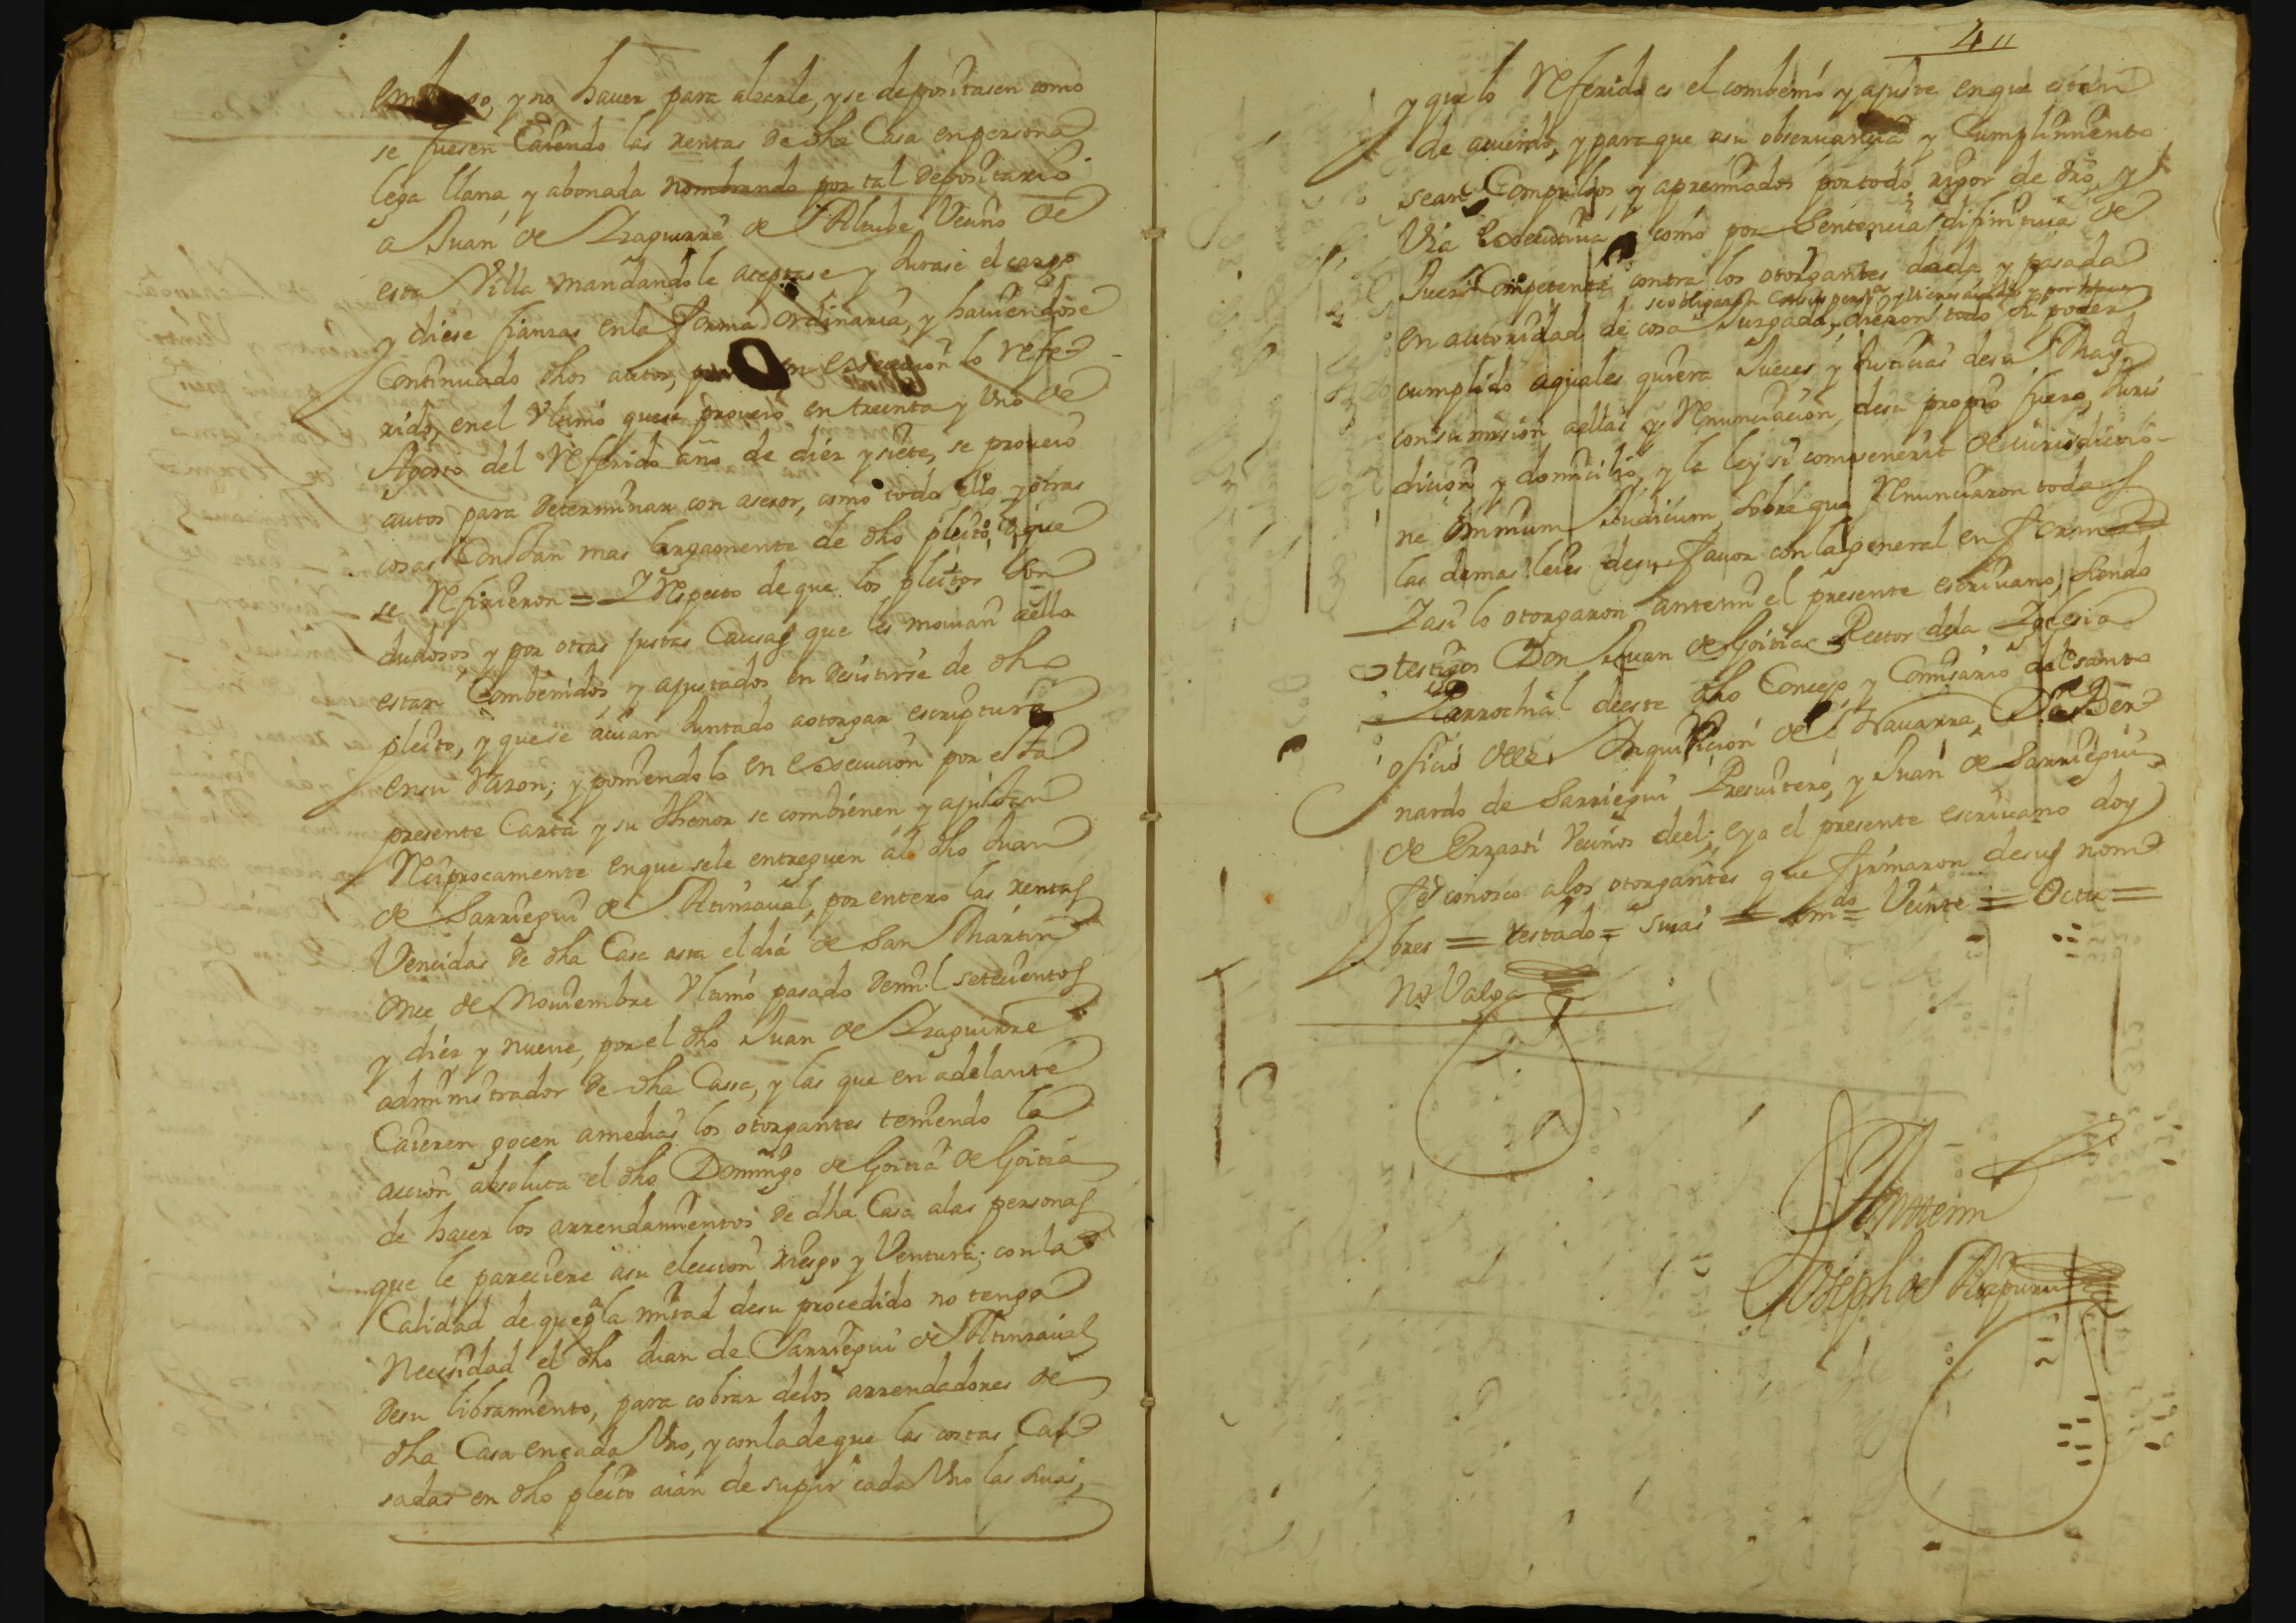 y no hauer para alzarle, y se depositasen como
se fuesen Caiendo las rentas de dha Casa en persona
lega llana, y abonada nombrando por tal depositario
a Juan de Yzaguirre de Altube Vecino de
esta Villa mandandole aceptase y Jurase el cargo
y diese fianzas en la forma ordinaria, y hauiendose
Continuado dhos autos, en execucion lo refe-
rido, en el Vltimo que se proueio en treinta y Uno de
Agosto del Referido año de diez y siete, se proueio
autos para determinar con asesor, como todo ello y otras
cosas Constan mas largamente de dho pleito, a que
se Refirieron = Y Respecto de que los pleitos Son
dudosos, y por otras justas Causas que les mouian a ello
estan Combenidos y ajustados en desistirse de dho
pleito, y que se auian Juntado a otorgar escriptura
en su razon; y poniendolo en execucion por esta
presente Carta y su thenor se combienen y ajustan
Reciprocamente en que se le entreguen al dho Juan
de Sarriegui de Atinsaual, por entero las rentas
Vencidas de dha Casa asta el dia de San Martin
Once de Nouiembre Vltimo pasado de mil setecientos
y diez y nueue, por el dho Juan de Yzaguirre
administrador de dha Cassa, y las que en adelante
Caieren gocen a medias los otorgantes teniendo la
accion absoluta el dho Domingo de Goitia de Goitia
de hacer los arrendamientos de dha Casa a las personas
que le pareciere a su eleccion riesgo y Ventura; con la
Calidad de que a la mitad de su procedido no tenga
Necesidad el dho Juan de Sarriegui de Atinsaual
de su libramiento, para cobrar de los arrendadores de
dha Casa en cada Uno, y con la de que las costas Cau-
sadas en dho pleito aian de suplir cada Uno las Suias,
4
y que lo Referido es el combenio y ajuste en que estan
de acuerdo, y para que a su obseruancia y Cumplimiento
sean Compulsos, y apremiados por todo rigor de dro, y
Via executiua como por Sentencia difinitiua de
Juez Competente contra los otorgantes dada y pasada
se obligaron con sus personas y vienes auidos y por hauer
en autoridad de cosa Juzgada, dieron todo su poder
cumplido a quales quiera Jueces y Justicias de su Magd
con sumision a ellas y Renunciacion de su propio fuero, Juris
dicion y domicilio, y la ley si combenerit de iurisdicio-
ne Omnium Judicum, sobre que Renunciaron todas
las demas leies de su fauor con la general en forma
Y asi lo otorgaron ante mi el presente escriuano, siendo
testigos Don Juan de Goitia Rector de la Yglesia
Parrochial de este dho Concejo, y Comisario del santo
oficio de la Inquisicion de Nauarra, Dn Ber-
nardo de Sarriegui Presuitero, y Juan de Sarriegui
de Errazti Vecinos de el; e yo el presente escriuano doy
fe conozco a los otorgantes que firmaron de sus nom-
bres = testado = Suias = emdo = Veinte = Octu =
No Valga
Ante mi
Joseph de Aizpuru